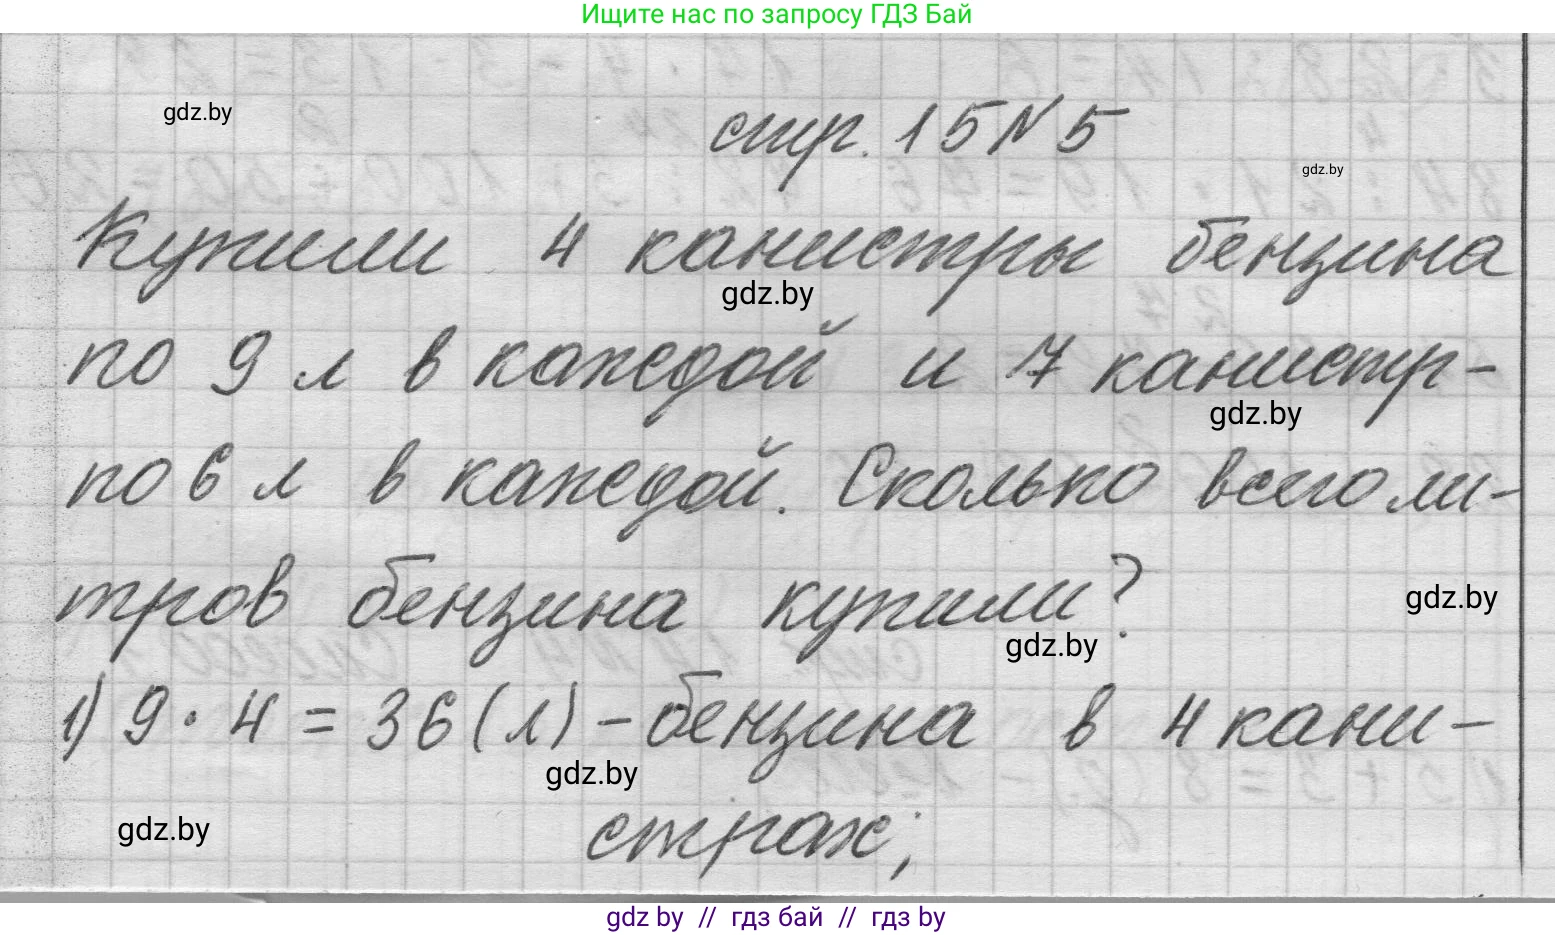 Ищите нас по запросу ГДЗ Бай
gdz.by
стр. 15 N 5
gdz.by
Купили 4 канистры бензина
gdz.by
по 9 л в каждой и 7 канистр-
gdz.by
по 6 л в каждой. Сколько всего ли-
тров бензина купили?
gdz.by
gdz.by
1) 9 · 4 = 36 (л) - бензина в 4 кани-
gdz.by
gdz.by
страх;
gdz by // гдз бай // гдз by